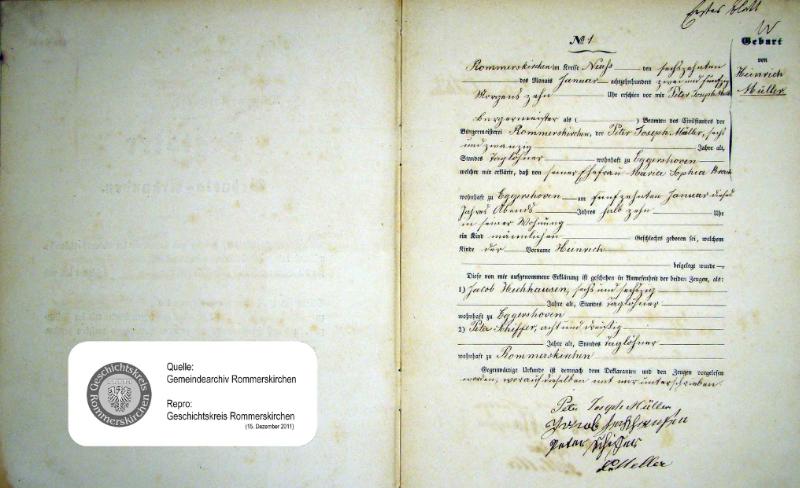 Erstes Blatt
№ 1
Geburt
von
Heinrich
Müller
Rommerskirchen im Kreise Neuß den sechszehnten
des Monats Januar achtzehnhundert zwei und fünfzig
Morgens zehn Uhr erschien vor mir Peter Joseph
Bürgermeister als ( ) Beamten des Civilstandes der
Bürgermeisterei Rommerskirchen, der Peter Joseph Müller, sechs
und zwanzig Jahre alt,
Standes Taglöhner wohnhaft zu Eggershoven
welcher mir erklärte, daß von seiner Ehefrau Maria Sophia
wohnhaft zu Eggershoven am fünfzehnten Januar dieses
Jahres Abends Jahres halb zehn Uhr
in seiner Wohnung
ein Kind männlichen Geschlechts geboren sei, welchem
Kinde der Vorname Heinrich
beigelegt wurde
Diese von mir aufgenommene Erklärung ist geschehen in Anwesenheit der beiden Zeugen, als:
1) Jacob Hechhausen, sechs und sechzig
Jahre alt, Standes Taglöhner
wohnhaft zu Eggershoven
2) Peter Schiffer, acht und dreißig
Jahre alt, Standes Taglöhner
wohnhaft zu Rommerskirchen
Gegenwärtige Urkunde ist demnach dem Deklaranten und den Zeugen vorgelesen
worden, worauf dieselben mit mir unterschrieben.
Peter Joseph Müller
Jacob Hechhausen
Peter Schiffer
Geschichtskreis
Rommerskirchen
Quelle:
Gemeindearchiv Rommerskirchen
Repro:
Geschichtskreis Rommerskirchen
(15. Dezember 2011)